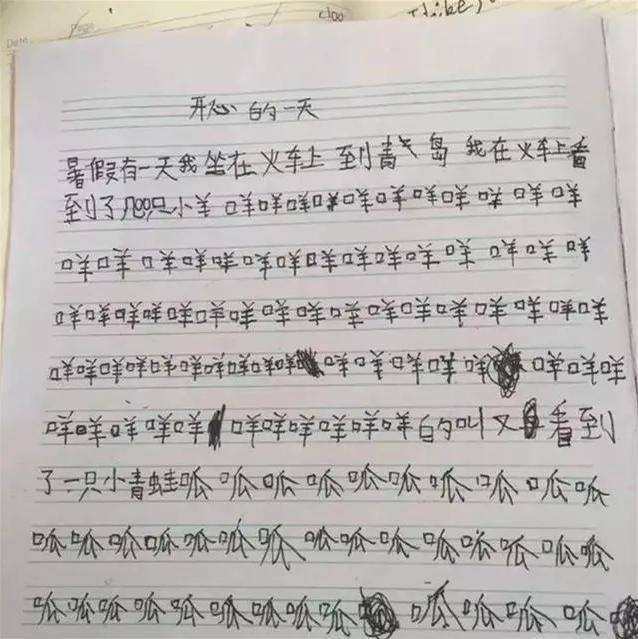 Date Page
开心的一天
暑假有一天我坐在火车上到青岛我在火车上看
到了几只小羊咩咩咩咩咩咩咩咩咩咩咩
咩咩咩咩咩咩咩咩咩咩咩咩咩咩咩
咩咩咩咩咩咩咩咩咩咩咩咩咩咩咩咩咩
咩咩咩咩咩咩咩咩咩咩咩咩咩咩咩咩咩咩
咩咩咩咩咩咩咩咩咩咩咩的叫又看到
了一只小青蛙呱呱呱呱呱呱呱呱呱呱
呱呱呱呱呱呱呱呱呱呱呱呱呱呱呱
呱呱呱呱呱呱呱呱呱呱呱呱呱呱呱